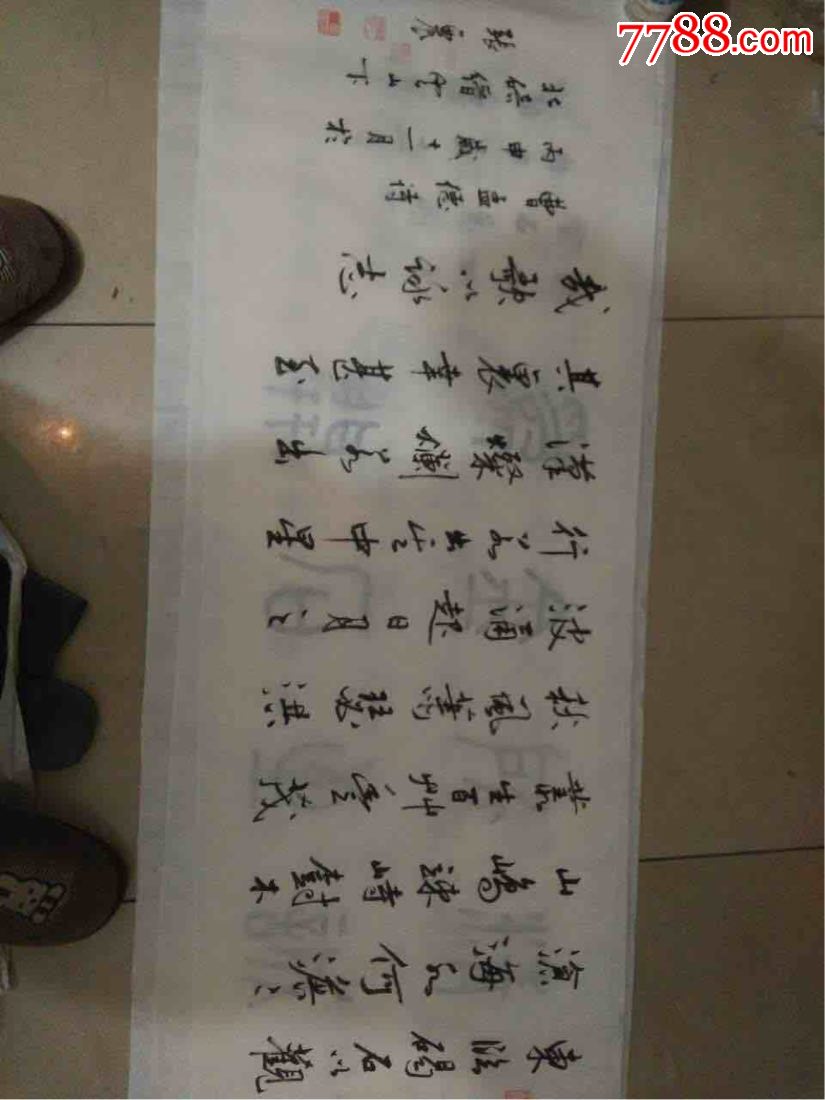 7788.com
東臨碣石以觀
滄海水何澹〻
山島竦峙樹木
叢生百艸豐茂
秋風蕭瑟洪
波涌起日月之
行若出其中星
漢燦爛若出
其裏幸甚至
哉歌以詠志
曹孟德詩
丙申歲十一月於
北碚縉雲山下
張